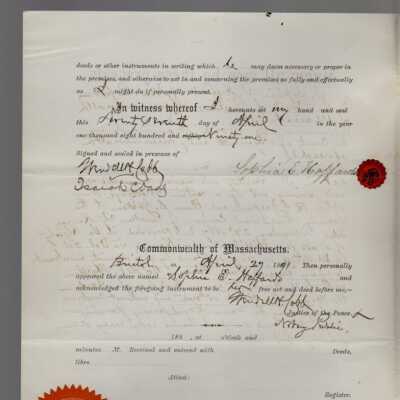 deeds or other instruments in writing which he may deem necessary or proper in
the premises, and otherwise to act in and concerning the premises as fully and effectually
as I might do if personally present.
In witness whereof I hereunto set my hand and seal
this Twenty Seventh day of April in the year
one thousand eight hundred and eighty Ninety one.
Signed and sealed in presence of
Wendell H. Cobb
Sophia E. Haffards
Isaiah C. Dade
Commonwealth of Massachusetts.
Bristol ss. April 27 1891 Then personally
appeared the above named Sophia E. Haffards and
acknowledged the foregoing instrument to be her free act and deed before me,—
Wendell H. Cobb
Justice of the Peace &
Notary Public.
188 , at o'clock and
minutes M. Received and entered with Deeds,
libro
Attest:
Register.